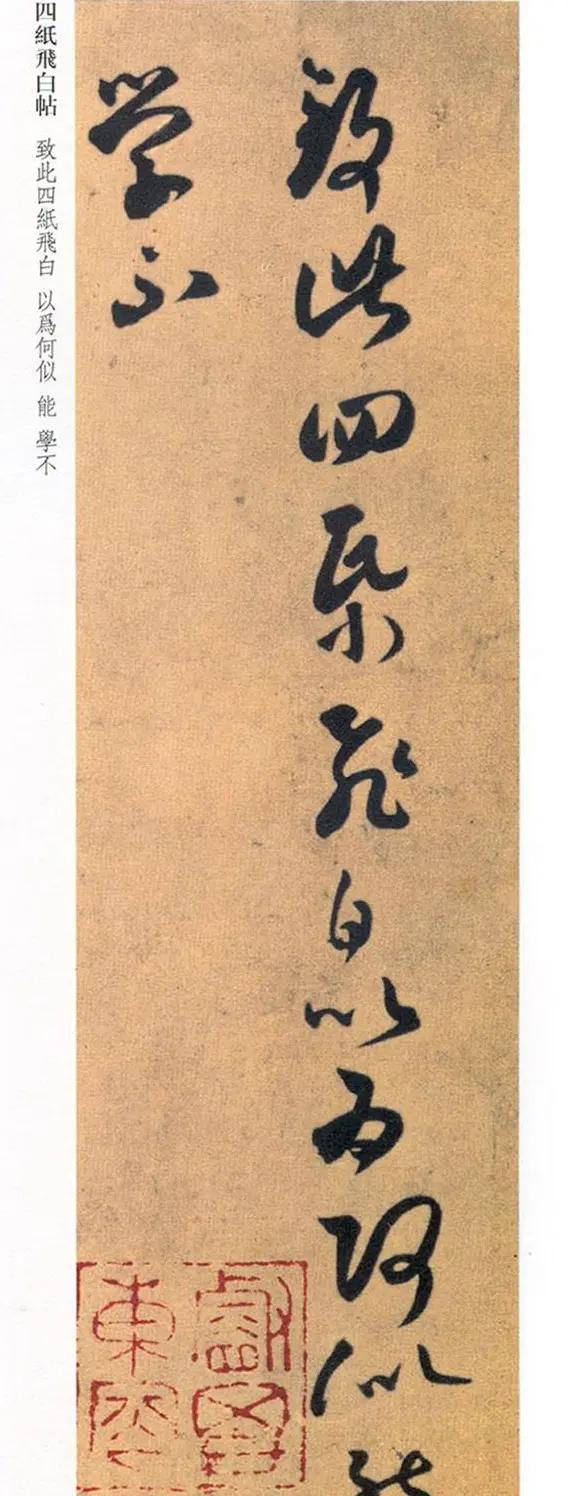 致此四帋飛白以为何似能
学不
四紙飛白帖 致此四紙飛白 以爲何似 能 學不